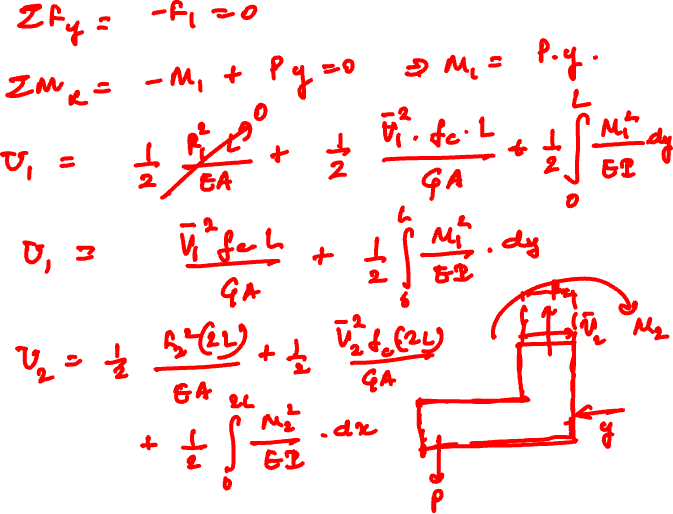 ΣFy = -F1 = 0
ΣMR = -M1 + Py = 0 ⇒ M1 = P.y.
U1 = 1/2 F1² L / EA → 0 + 1/2 V̄1² . fc . L / GA + 1/2 ∫0^L M1² / EI dy
U1 = V̄1² fc L / GA + 1/2 ∫0^L M1² / EI . dy
U2 = 1/2 F2² (2L) / EA + 1/2 V̄2² fc (2L) / GA
+ 1/2 ∫0^2L M2² / EI . dx
V̄2
M2
y
P